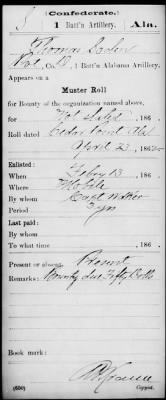 Confederate.
1 Batt'n Artillery. Ala.
Thomas
Pvt, Co. B, 1 Batt'n Alabama Artillery.
Appears on a
Muster Roll
for Bounty of the organization named above,
for Not dated, 186 .
Roll dated Cedar Point Ala
April 23, 1862
Enlisted:
When Feby 13, 186 .
Where Mobile
By whom Capt
Period 3 yrs
Last paid:
By whom
To what time , 186 .
Present or absent Present
Remarks: Bounty due Fifty Dolls
Book mark:
(650) Copyist.